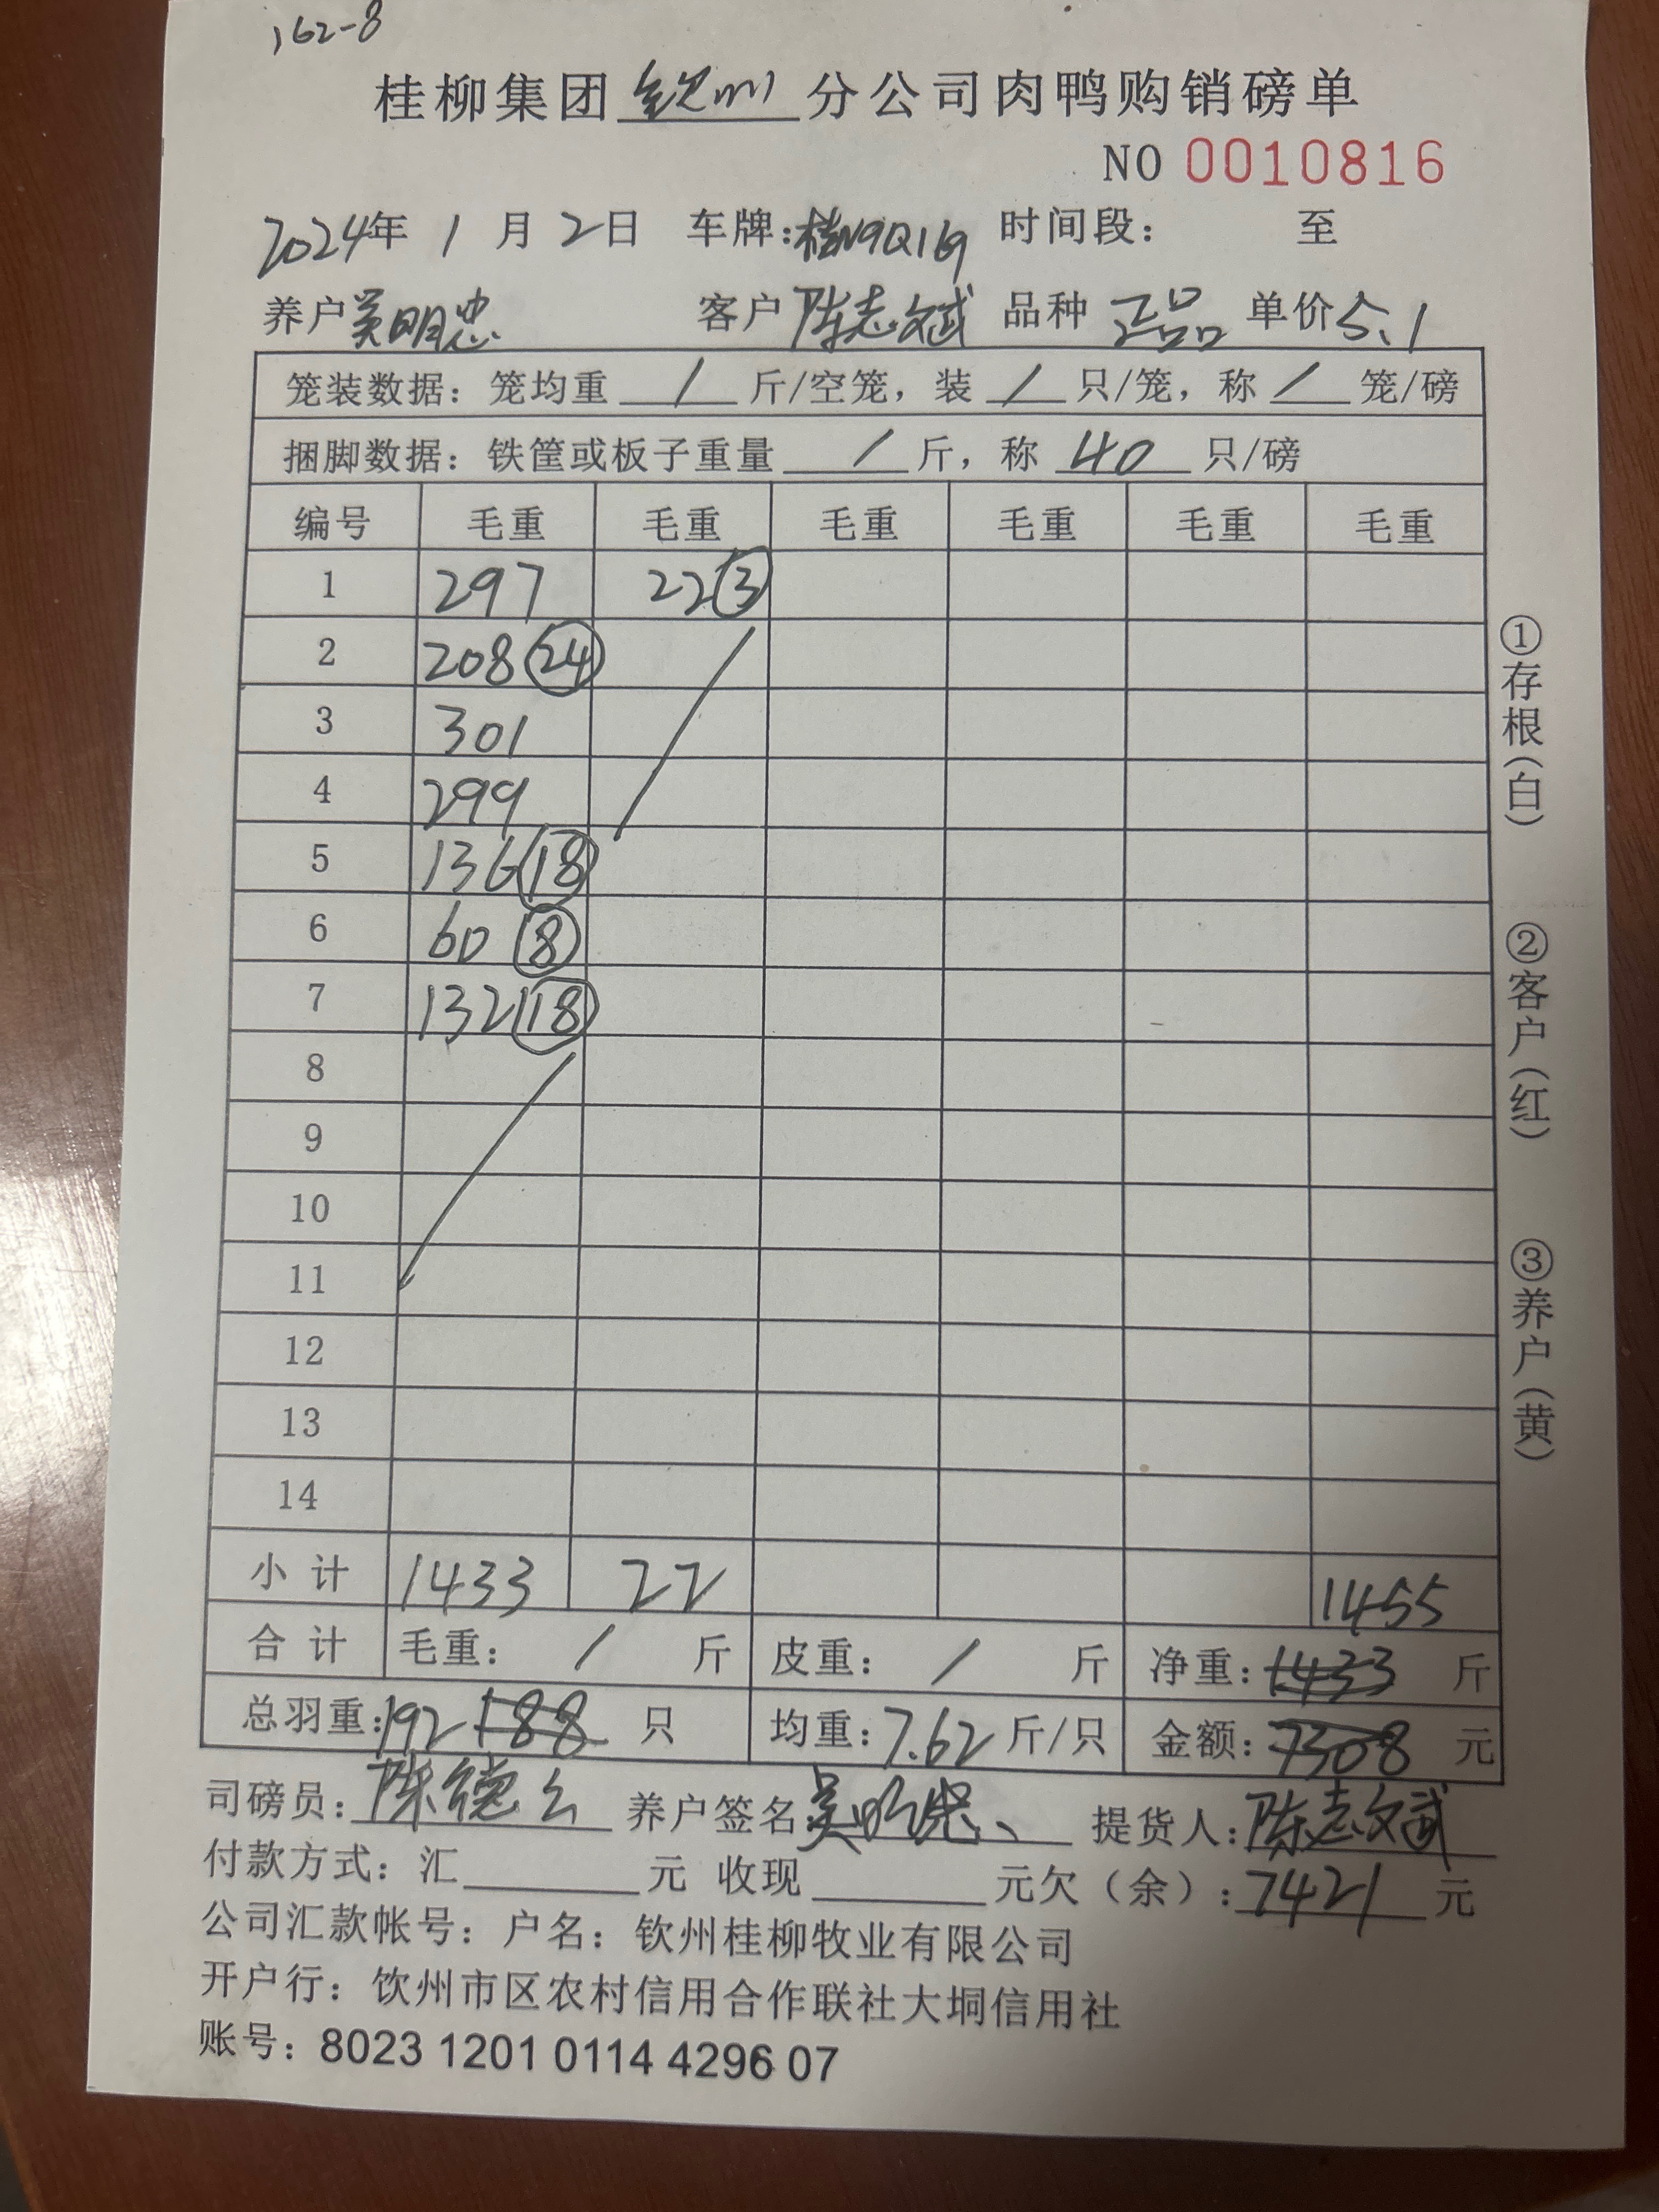 162-8
桂柳集团钦州分公司肉鸭购销磅单
NO 0010816
2024年 1 月 2日 车牌:桂N9Q1 时间段: 至
养户吴明忠 客户陈志斌 品种正品 单价5.1
笼装数据: 笼均重 / 斤/空笼, 装 / 只/笼, 称 / 笼/磅
捆脚数据: 铁筐或板子重量 / 斤, 称 40 只/磅
编号 毛重 毛重 毛重 毛重 毛重 毛重
1 297 22 ③
2 208 ㉔
3 301
4 299
5 136 ⑱
6 60 ⑧
7 132 ⑱
8
9
10
11
12
13
14
小 计 1433 22 1455
合 计 毛重: / 斤 皮重: / 斤 净重: 1433 斤
总羽重: 192 188 只 均重: 7.62 斤/只 金额: 7308 元
司磅员: 陈德 养户签名 吴明忠 提货人: 陈志斌
付款方式: 汇 元 收现 元欠(余): 7421 元
公司汇款帐号: 户名: 钦州桂柳牧业有限公司
开户行: 饮州市区农村信用合作联社大垌信用社
账号: 8023 1201 0114 4296 07
①存根(白)
②客户(红)
③养户(黄)